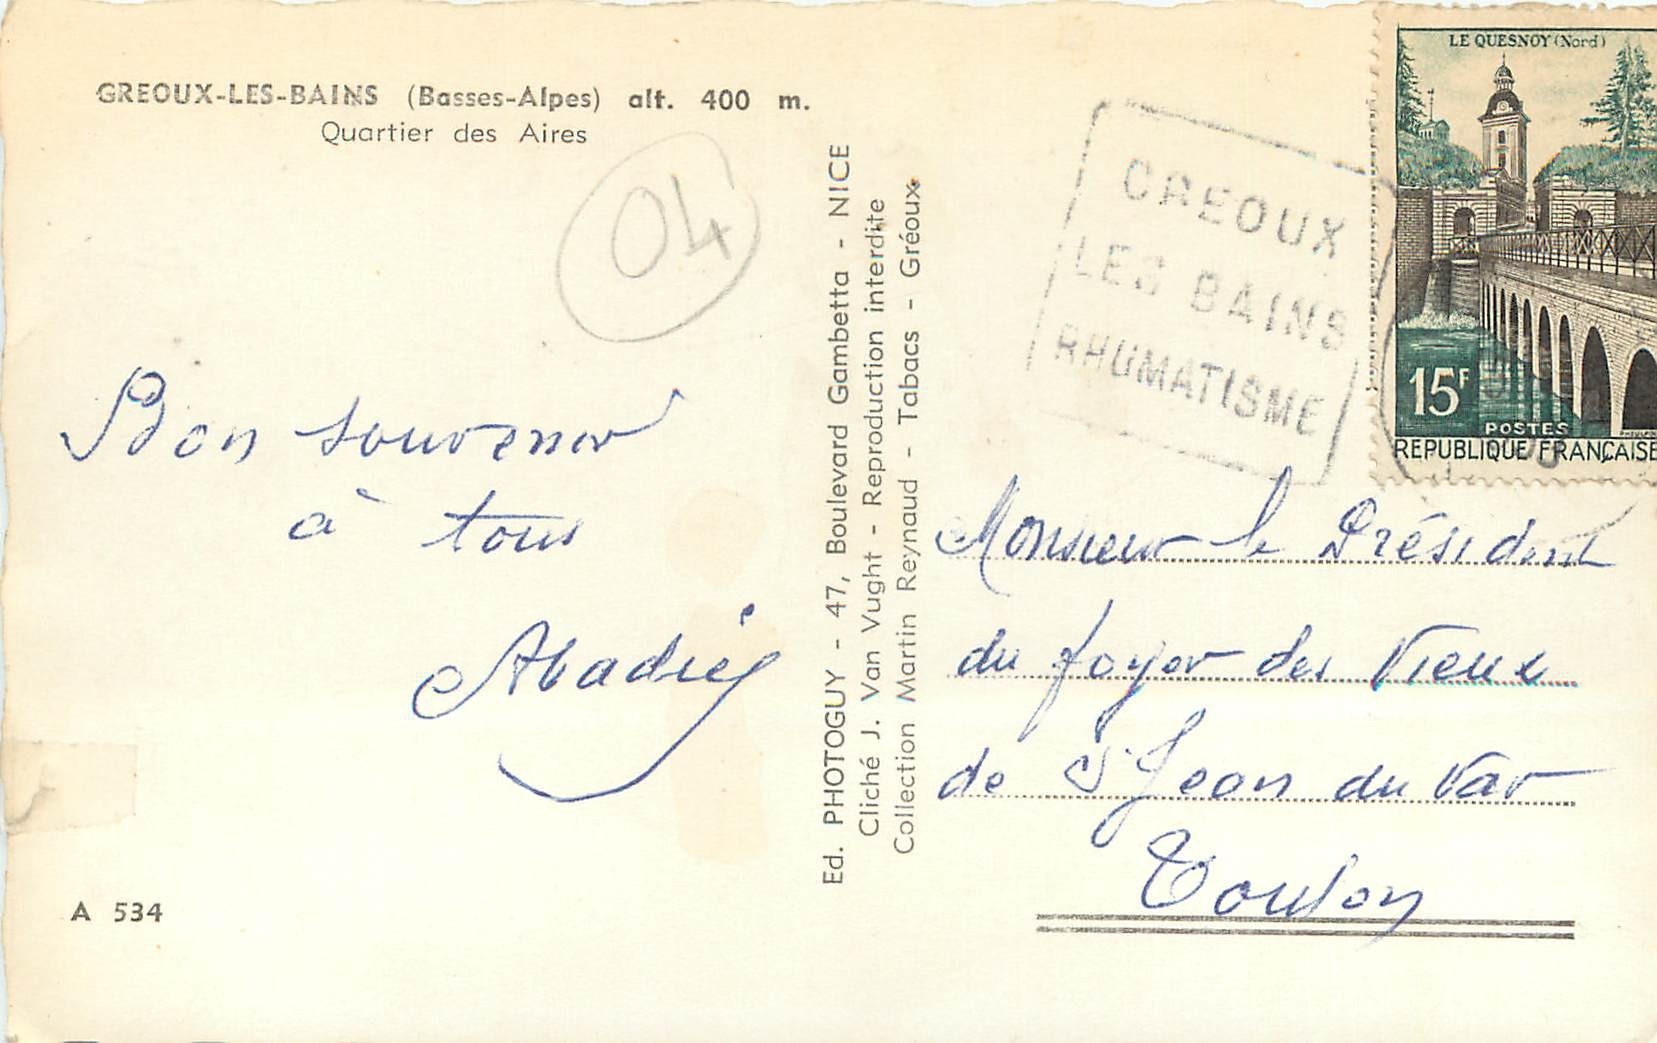 GREOUX-LES-BAINS (Basses-Alpes) alt. 400 m.
Quartier des Aires
04
Bon souvenir
à tous
Abadie
A 534
Ed. PHOTOGUY - 47, Boulevard Gambetta - NICE
Cliché J. Van Vught - Reproduction interdite
Collection Martin Reynaud - Tabacs - Gréoux.
GREOUX
LES BAINS
RHUMATISME
LE QUESNOY (Nord)
15F
POSTES
REPUBLIQUE FRANÇAISE
Monsieur le Président
du foyer des Vieux
de St Jean du Var
Toulon